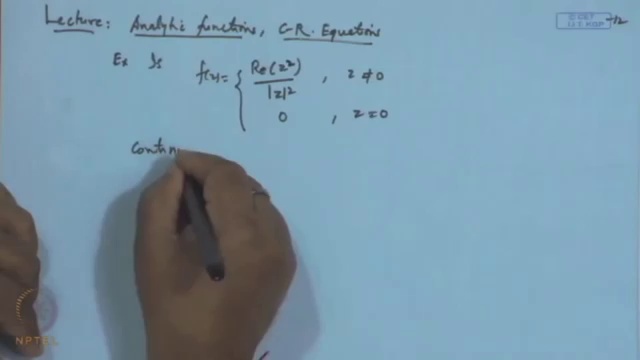 Lecture: Analytic functions, C-R. Equations
© CET
I.I.T. KGP
Ex Is f(z) = { Re(z²) / |z|² , z ≠ 0
0 , z = 0
contin
NPTEL